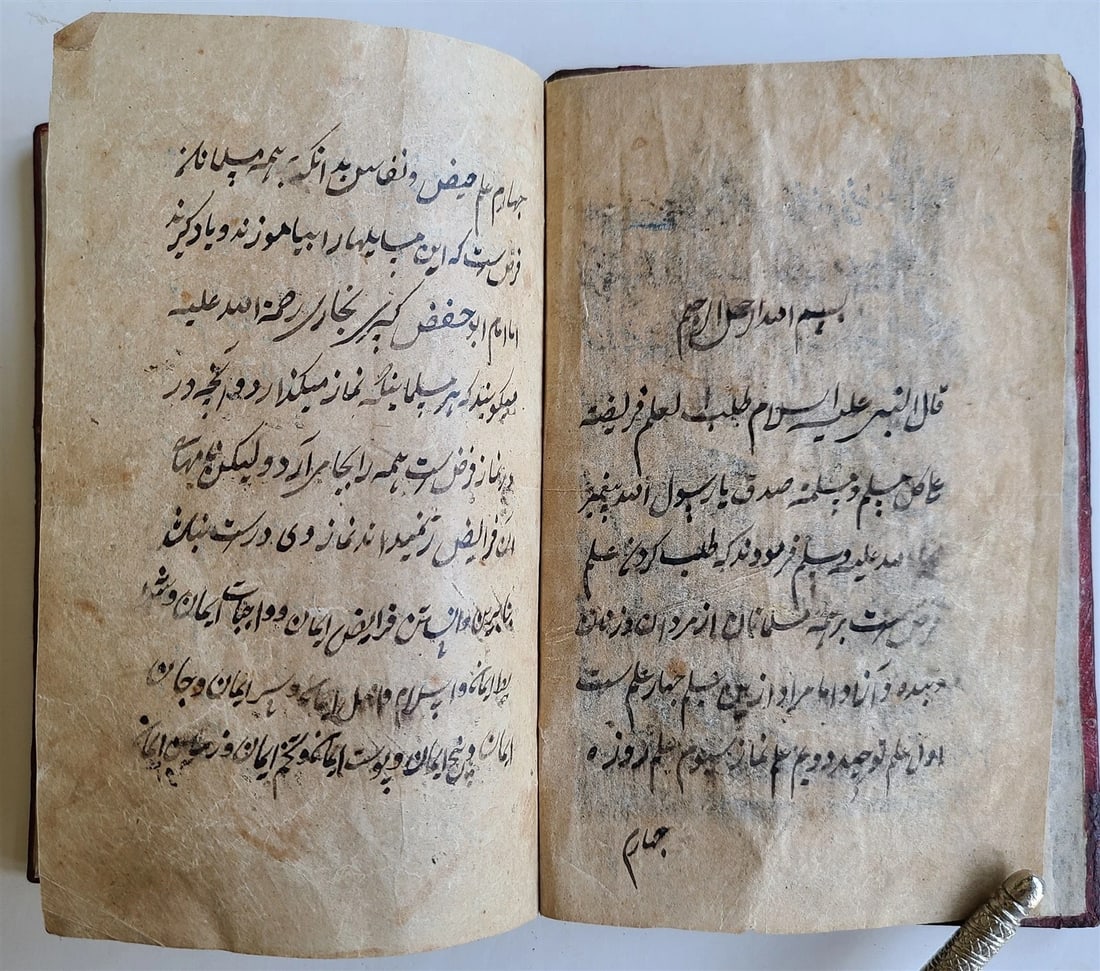 بسم الله الرحمن الرحیم
قال النبی علیه السلام طلب لعلم فریضته
علی کل مسلم و مسلمته صدق یا رسول الله پیغمبر
الله علیه وسلم فرمودند که طلب کردن علم
فرض ست بر همه مسلمانان از مردان و زنان
و بنده و آزاد اما مراد ازین علم چهار علم ست
اول علم توحید دویم علم نماز سیوم علم روزه
چهارم
چهارم علم حیض و نفاس بدانکه بهمه مسلمانان
فرض ست که این مسایلها را بیاموزند و یاد گیرند
اما امام ابو حفض کبیری بخاری رحمة الله علیه
میکویند که هر مسلمانیکه نماز میکذارد و آنچه در
نماز فرض ست همه را بجا می آرد و لیکن
این فرایض نمیداند نماز وی درست نباشد
بنابرین دانستن فرایض ایمان و واجبات ایمان و شر
ایمان و اسلام و اصل ایمان و سر ایمان و جان
ایمان و بیخ ایمان و پوست ایمان و تخم ایمان و زمین ایمان